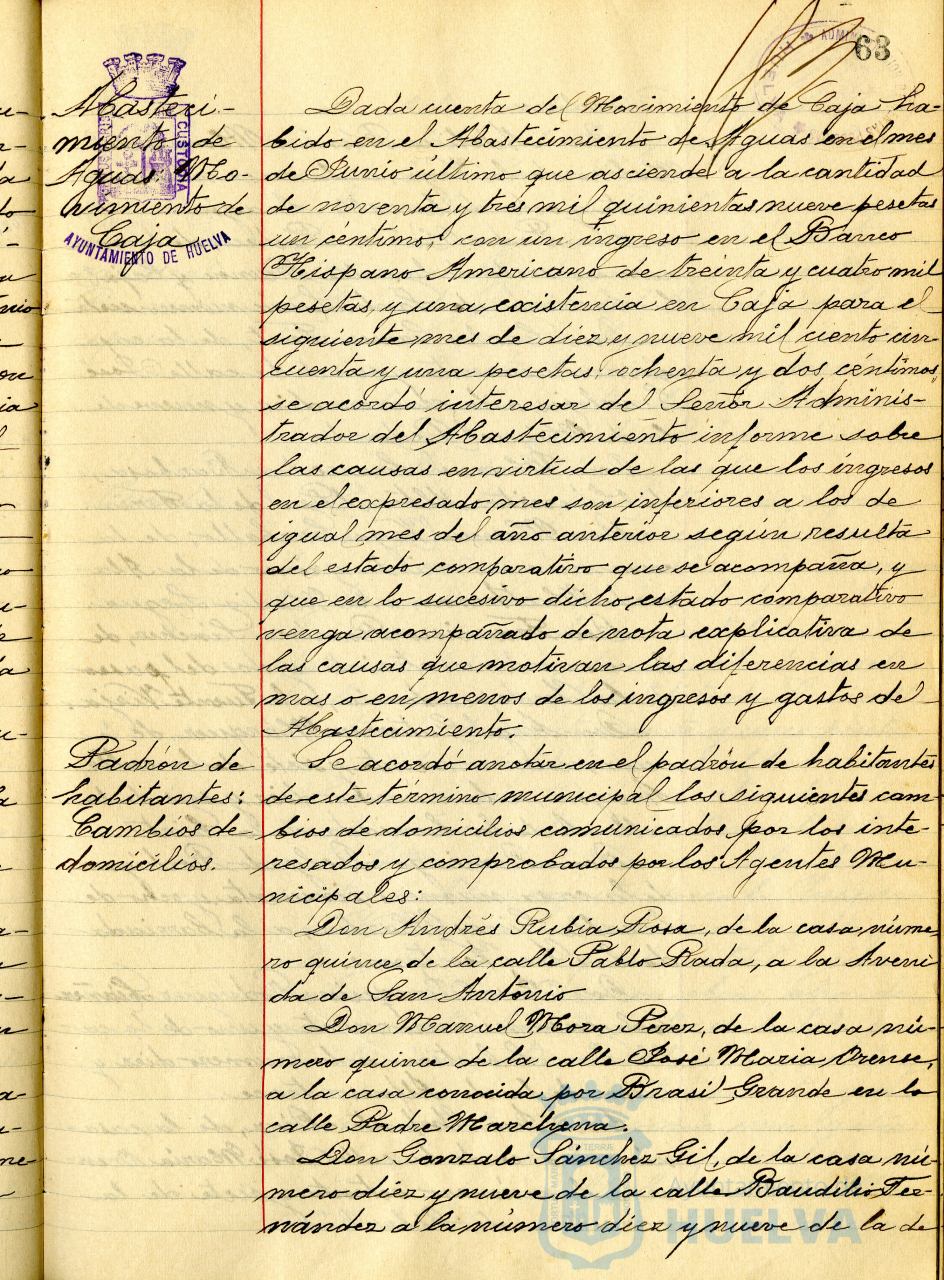 63
Abasteci-
miento de
Aguas: Mo-
vimiento de
Caja
AYUNTAMIENTO DE HUELVA
CUSTODIA
Dada cuenta del Movimiento de Caja ha-
bido en el Abastecimiento de Aguas en el mes
de Junio último que asciende a la cantidad
de noventa y tres mil quinientas nueve pesetas
un céntimo, con un ingreso en el Banco
Hispano Americano de treinta y cuatro mil
pesetas, y una existencia en Caja para el
siguiente mes de diez y nueve mil ciento cin-
cuenta y una pesetas, ochenta y dos céntimos,
se acordó interesar del Señor Adminis-
trador del Abastecimiento informe sobre
las causas en virtud de las que los ingresos
en el expresado mes son inferiores a los de
igual mes del año anterior según resulta
del estado comparativo que se acompaña, y
que en lo sucesivo dicho estado comparativo
venga acompañado de nota explicativa de
las causas que motivan las diferencias en
mas o en menos de los ingresos y gastos del
Abastecimiento.
Padrón de
habitantes:
Cambios de
domicilios.
Se acordó anotar en el padrón de habitantes
de este término municipal los siguientes cam
bios de domicilios comunicados por los inte-
resados y comprobados por los Agentes Mu-
nicipales:
Don Andrés Rubia Rosa, de la casa núme-
ro quince de la calle Pablo Rada, a la Aveni
da de San Antonio
Don Manuel Mora Perez, de la casa nú-
mero quince de la calle José Maria Orense,
a la casa conocida por Brasil Grande en la
calle Padre Marchena.
Don Gonzalo Sánchez Gil, de la casa nú-
mero diez y nueve de la calle Baudilio Fer-
nández a la número diez y nueve de la de
Ayuntamiento de
HUELVA